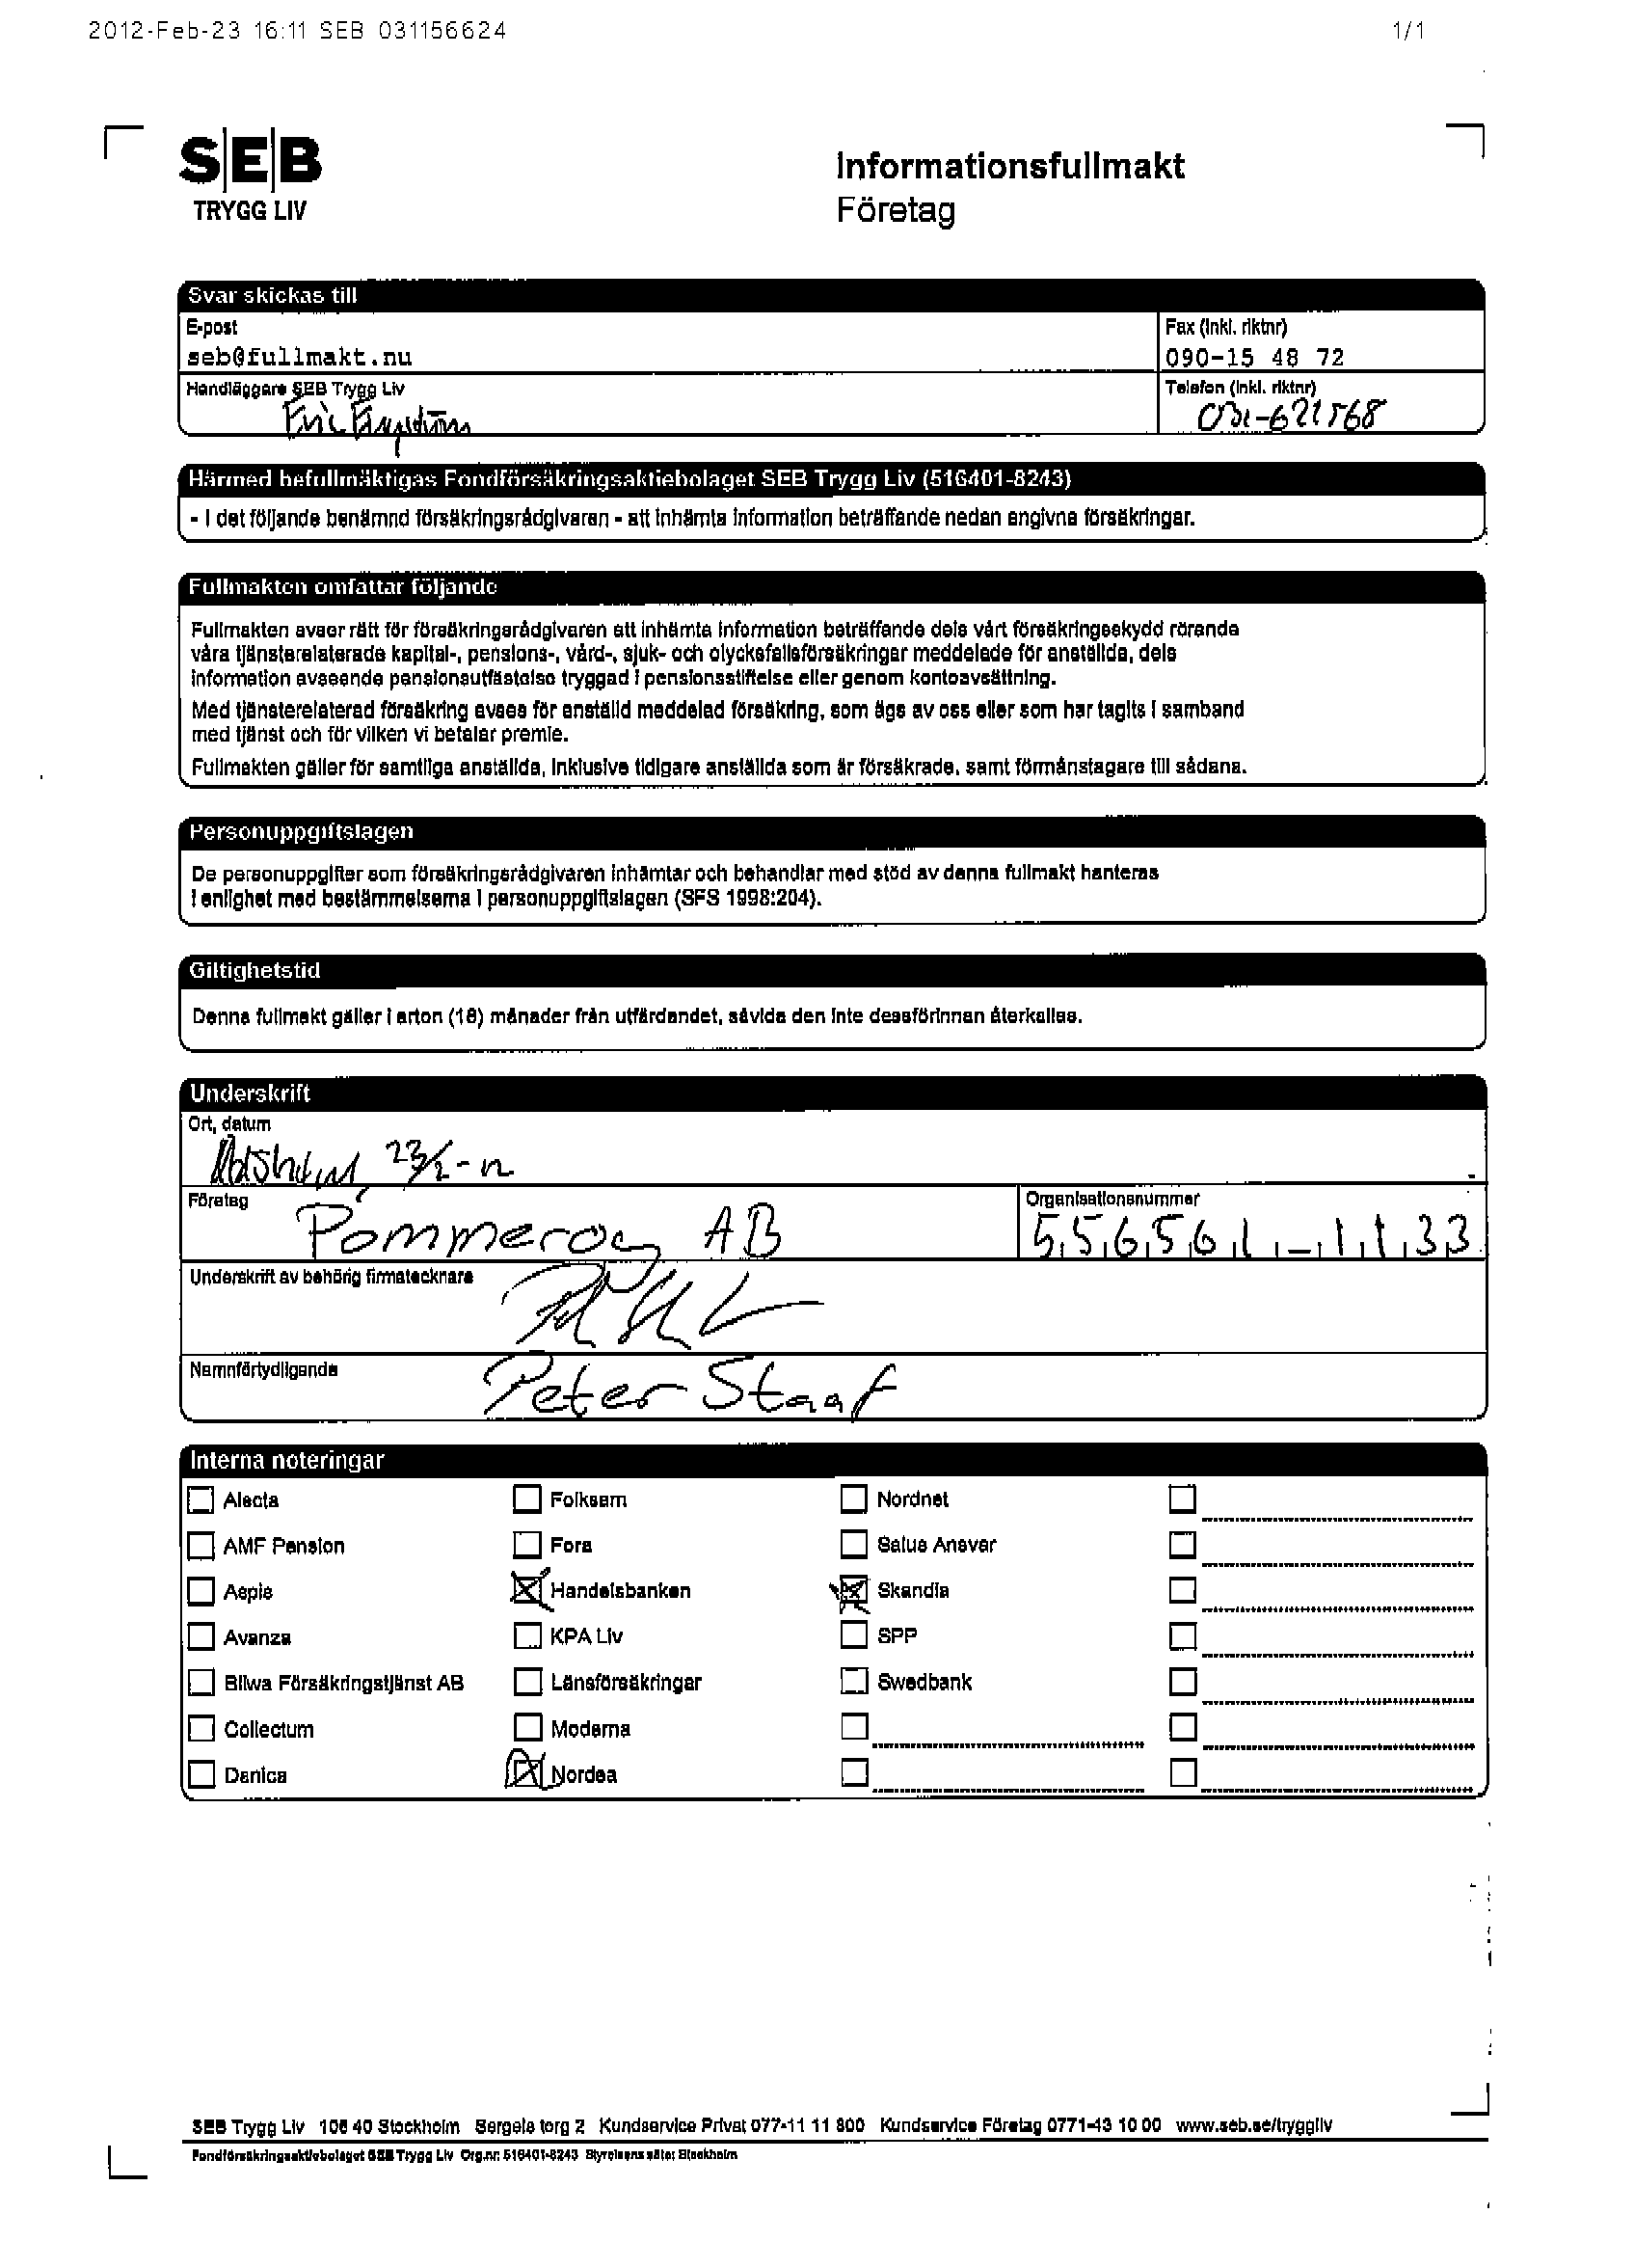 2012-Feb-23 16:11 SEB 031156624 1/1
SEB
TRYGG LIV
Informationsfullmakt
Företag
Svar skickas till
E-post
seb@fullmakt.nu
Fax (inkl. riktnr)
090-15 48 72
Handläggare SEB Trygg Liv
Eric
Telefon (inkl. riktnr)
031-621568
Härmed befullmäktigas Fondförsäkringsaktiebolaget SEB Trygg Liv (516401-8243)
- i det följande benämnd försäkringsrådgivaren - att inhämta information beträffande nedan angivna försäkringar.
Fullmakten omfattar följande
Fullmakten avser rätt för försäkringsrådgivaren att inhämta information beträffande dels vårt försäkringsskydd rörande
våra tjänsterelaterade kapital-, pensions-, vård-, sjuk- och olycksfallsförsäkringar meddelade för anställda, dels
information avseende pensionsutfästelse tryggad i pensionsstiftelse eller genom kontoavsättning.
Med tjänsterelaterad försäkring avses för anställd meddelad försäkring, som ägs av oss eller som har tagits i samband
med tjänst och för vilken vi betalar premie.
Fullmakten gäller för samtliga anställda, inklusive tidigare anställda som är försäkrade, samt förmånstagare till sådana.
Personuppgiftslagen
De personuppgifter som försäkringsrådgivaren inhämtar och behandlar med stöd av denna fullmakt hanteras
i enlighet med bestämmelserna i personuppgiftslagen (SFS 1998:204).
Giltighetstid
Denna fullmakt gäller i arton (18) månader från utfärdandet, såvida den inte dessförinnan återkallas.
Underskrift
Ort, datum
23/2-12
Företag
Pommeroy AB
Organisationsnummer
556561-1133
Underskrift av behörig firmatecknare
Namnförtydligande
Peter Staaf
Interna noteringar
Alecta Folksam Nordnet
AMF Pension Fora Salus Ansvar
Aspis Handelsbanken Skandia
Avanza KPA Liv SPP
Bliwa Försäkringstjänst AB Länsförsäkringar Swedbank
Collectum Moderna
Danica Nordea
SEB Trygg Liv 106 40 Stockholm Sergels torg 2 Kundservice Privat 077-11 11 800 Kundservice Företag 0771-43 10 00 www.seb.se/tryggliv
Fondförsäkringsaktiebolaget SEB Trygg Liv Org.nr: 516401-8243 Styrelsens säte: Stockholm